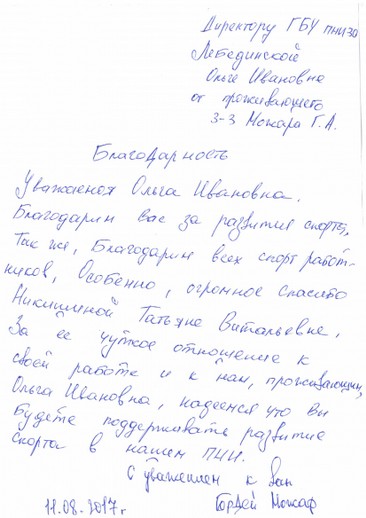 Директору ГБУ ПНИ 30
Лебединской
Ольге Ивановне
от проживающего
3-3 Можара Г.А.
Благодарность
Уважаемая Ольга Ивановна.
Благодарим вас за развития спорта,
Так же, Благодарим всех спорт работ-
ников, Особенно, огромное спасибо
Никишиной Татьяне Витальевне,
За её чуткое отношение к
своей работе и к нам, проживающим,
Ольга Ивановна, надеемся что Вы
будете поддерживать развитие
спорта в нашем ПНИ.
С уважением к вам
11.08.2017г. Гордей Можар